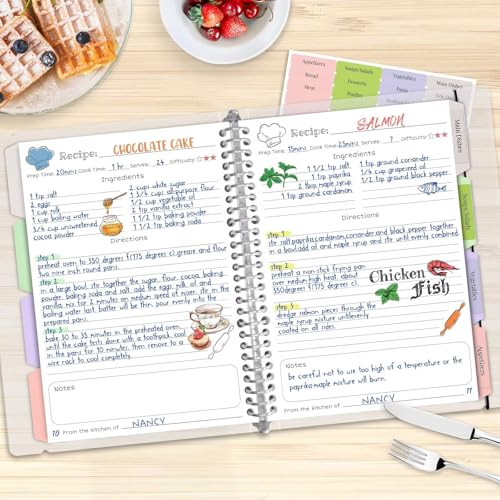 Recipe: CHOCOLATE CAKE
Prep Time: 20mins Cook Time: 1 hr Serves: 24 Difficulty:
Ingredients
1 tsp salt
2 eggs
1 cup milk
1 cup boiling water
3/4 cup unsweetened
cocoa powder
2 cups white sugar
1 3/4 cups all purpose flour
1/2 cup vegetable oil
2 tsp vanilla extract
1 1/2 tsp baking powder
1 1/2 tsp baking soda
Directions
step 1
preheat oven to 350 degrees F(175 degrees c).grease and flour
two nine inch round pans.
step 2
in a large bowl, stir together the sugar, flour, cocoa, baking
powder, baking soda and salt. add the eggs, milk, oil and
vanilla, mix for 2 minutes on medium speed of mixer. stir in the
boiling water last. batter will be thin. pour evenly into the
prepared pans.
step 3
bake 30 to 35 minutes in the preheated oven,
until the cake tests done with a toothpick. cool
in the pans for 10 minutes, then remove to a
wire rack to cool completely.
Notes
10 From the Kitchen of NANCY
Recipe: SALMON
Prep Time: 15mins Cook Time: 25mins Serves: ? Difficulty:
Ingredients
1 1/2 tsp salt
1 tsp paprika
2 tbsp maple syrup
1 tsp ground cardamon.
1 tsp ground coriander
1/4 cup grapeseed oil
1/2 tsp ground black pepper
Directions
step 1
stir salt,paprika,cardamon,coriander,and black pepper together
in a bowl.add oil and maple syrup and stir until evenly combined
step 2
preheat a non-stick frying pan
over medium high heat, about
350degrees F(175 degrees c).
step 3
dredge salmon pieces through the
maple syrup mixture untilevenly
coated on all sides.
Chicken
Fish
Notes
be careful not to use too high of a temperature or the
paprika-maple mixture will burn.
From the Kitchen of NANCY 11
Appetizers Soups/Salads Vegetables Main Dishes
Bread Desserts Pasta
Meat Poultry
Main Dishes
Soups/Salads
Vegetables
Appetizers